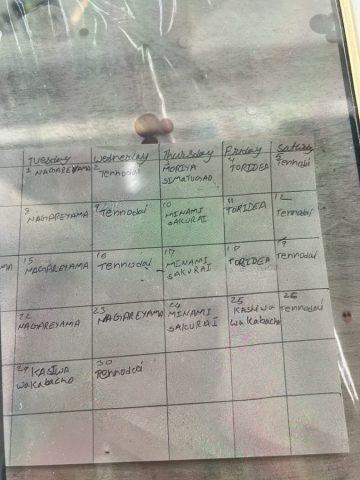 Tuesday Wednesday Thursday Friday Saturday
1 NAGAREYAMA
2 Tennodai
3 MORIYA
SIMATUGAO
4 TORIDEA
5 Tennodai
8 NAGAREYAMA
9 Tennodai
10 MINAMI
SAKURAI
11 TORIDEA
12 Tennodai
MA
15 NAGAREYAMA
16 Tennodai
17 MINAMI
SAKURAI
18 TORIDEA
19 Tennodai
22 NAGAREYAMA
23 NAGAREYAMA
24 MINAMI
SAKURAI
25 KASHIWA
wakabacho
26 Tennodai
29 KASIWA
wakabacho
30 Tennodai